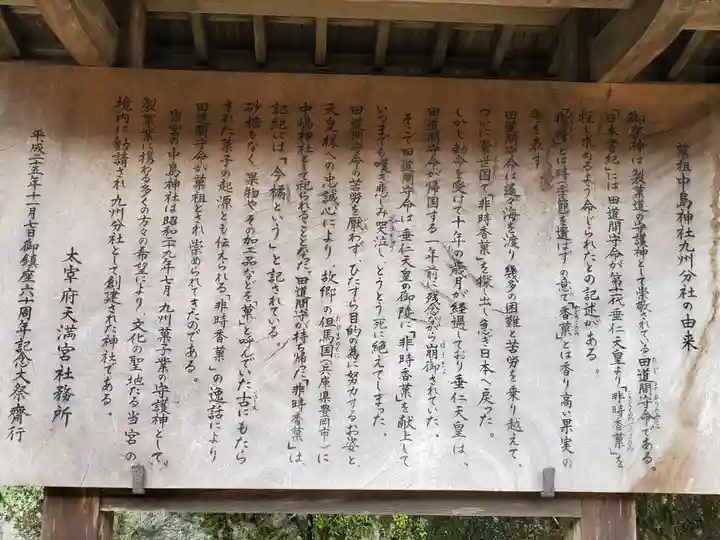 菓祖中島神社九州分社の由来
御祭神は製菓道の守護神として崇敬されている田道間守命である。
「日本書紀」には田道間守命が第十一代垂仁天皇より「非時香菓」を
探し求めるよう命じられたとの記述がある。
「非時」とは時(季節)を選ばずの意で「香菓」とは香り高い果実の
命を表す。
田道間守命は遥々海を渡り幾多の困難と苦労を乗り越えて、
ついに常世国で「非時香菓」を探し出し急ぎ日本へ戻った。
しかし勅命を受けて十年の歳月が経過しており垂仁天皇は、
田道間守命が帰国する一年前に残念ながら崩御されていた。
そこで田道間守命は垂仁天皇の御陵に「非時香菓」を献上して
いつまでも嘆き悲しみ哭泣し、とうとう死に絶えてしまった。
田道間守命の苦労を厭わず、ひたすら目的の為に努力するお姿と、
天皇様への忠誠心により、故郷の但馬国(兵庫県豊岡市)に
中嶋神社として祀られることとなった。田道間守が持ち帰った「非時香菓」は、
記紀には「今橘という」と記されている。
砂糖もなく、果物やその加工品などを「菓」と呼んでいた古にもたら
された菓子の起源とも伝えられる「非時香菓」の逸話により
田道間守命が菓祖とされ崇められてきたのである。
当宮の中島神社は昭和二十九年七月、九州菓子業の守護神として、
製菓業に携わる多くの方々の希望により、文化の聖地たる当宮の
境内に勧請され九州分社として創建された神社である。
太宰府天満宮社務所
平成二十五年十一月七日御鎮座六十周年記念大祭齊行